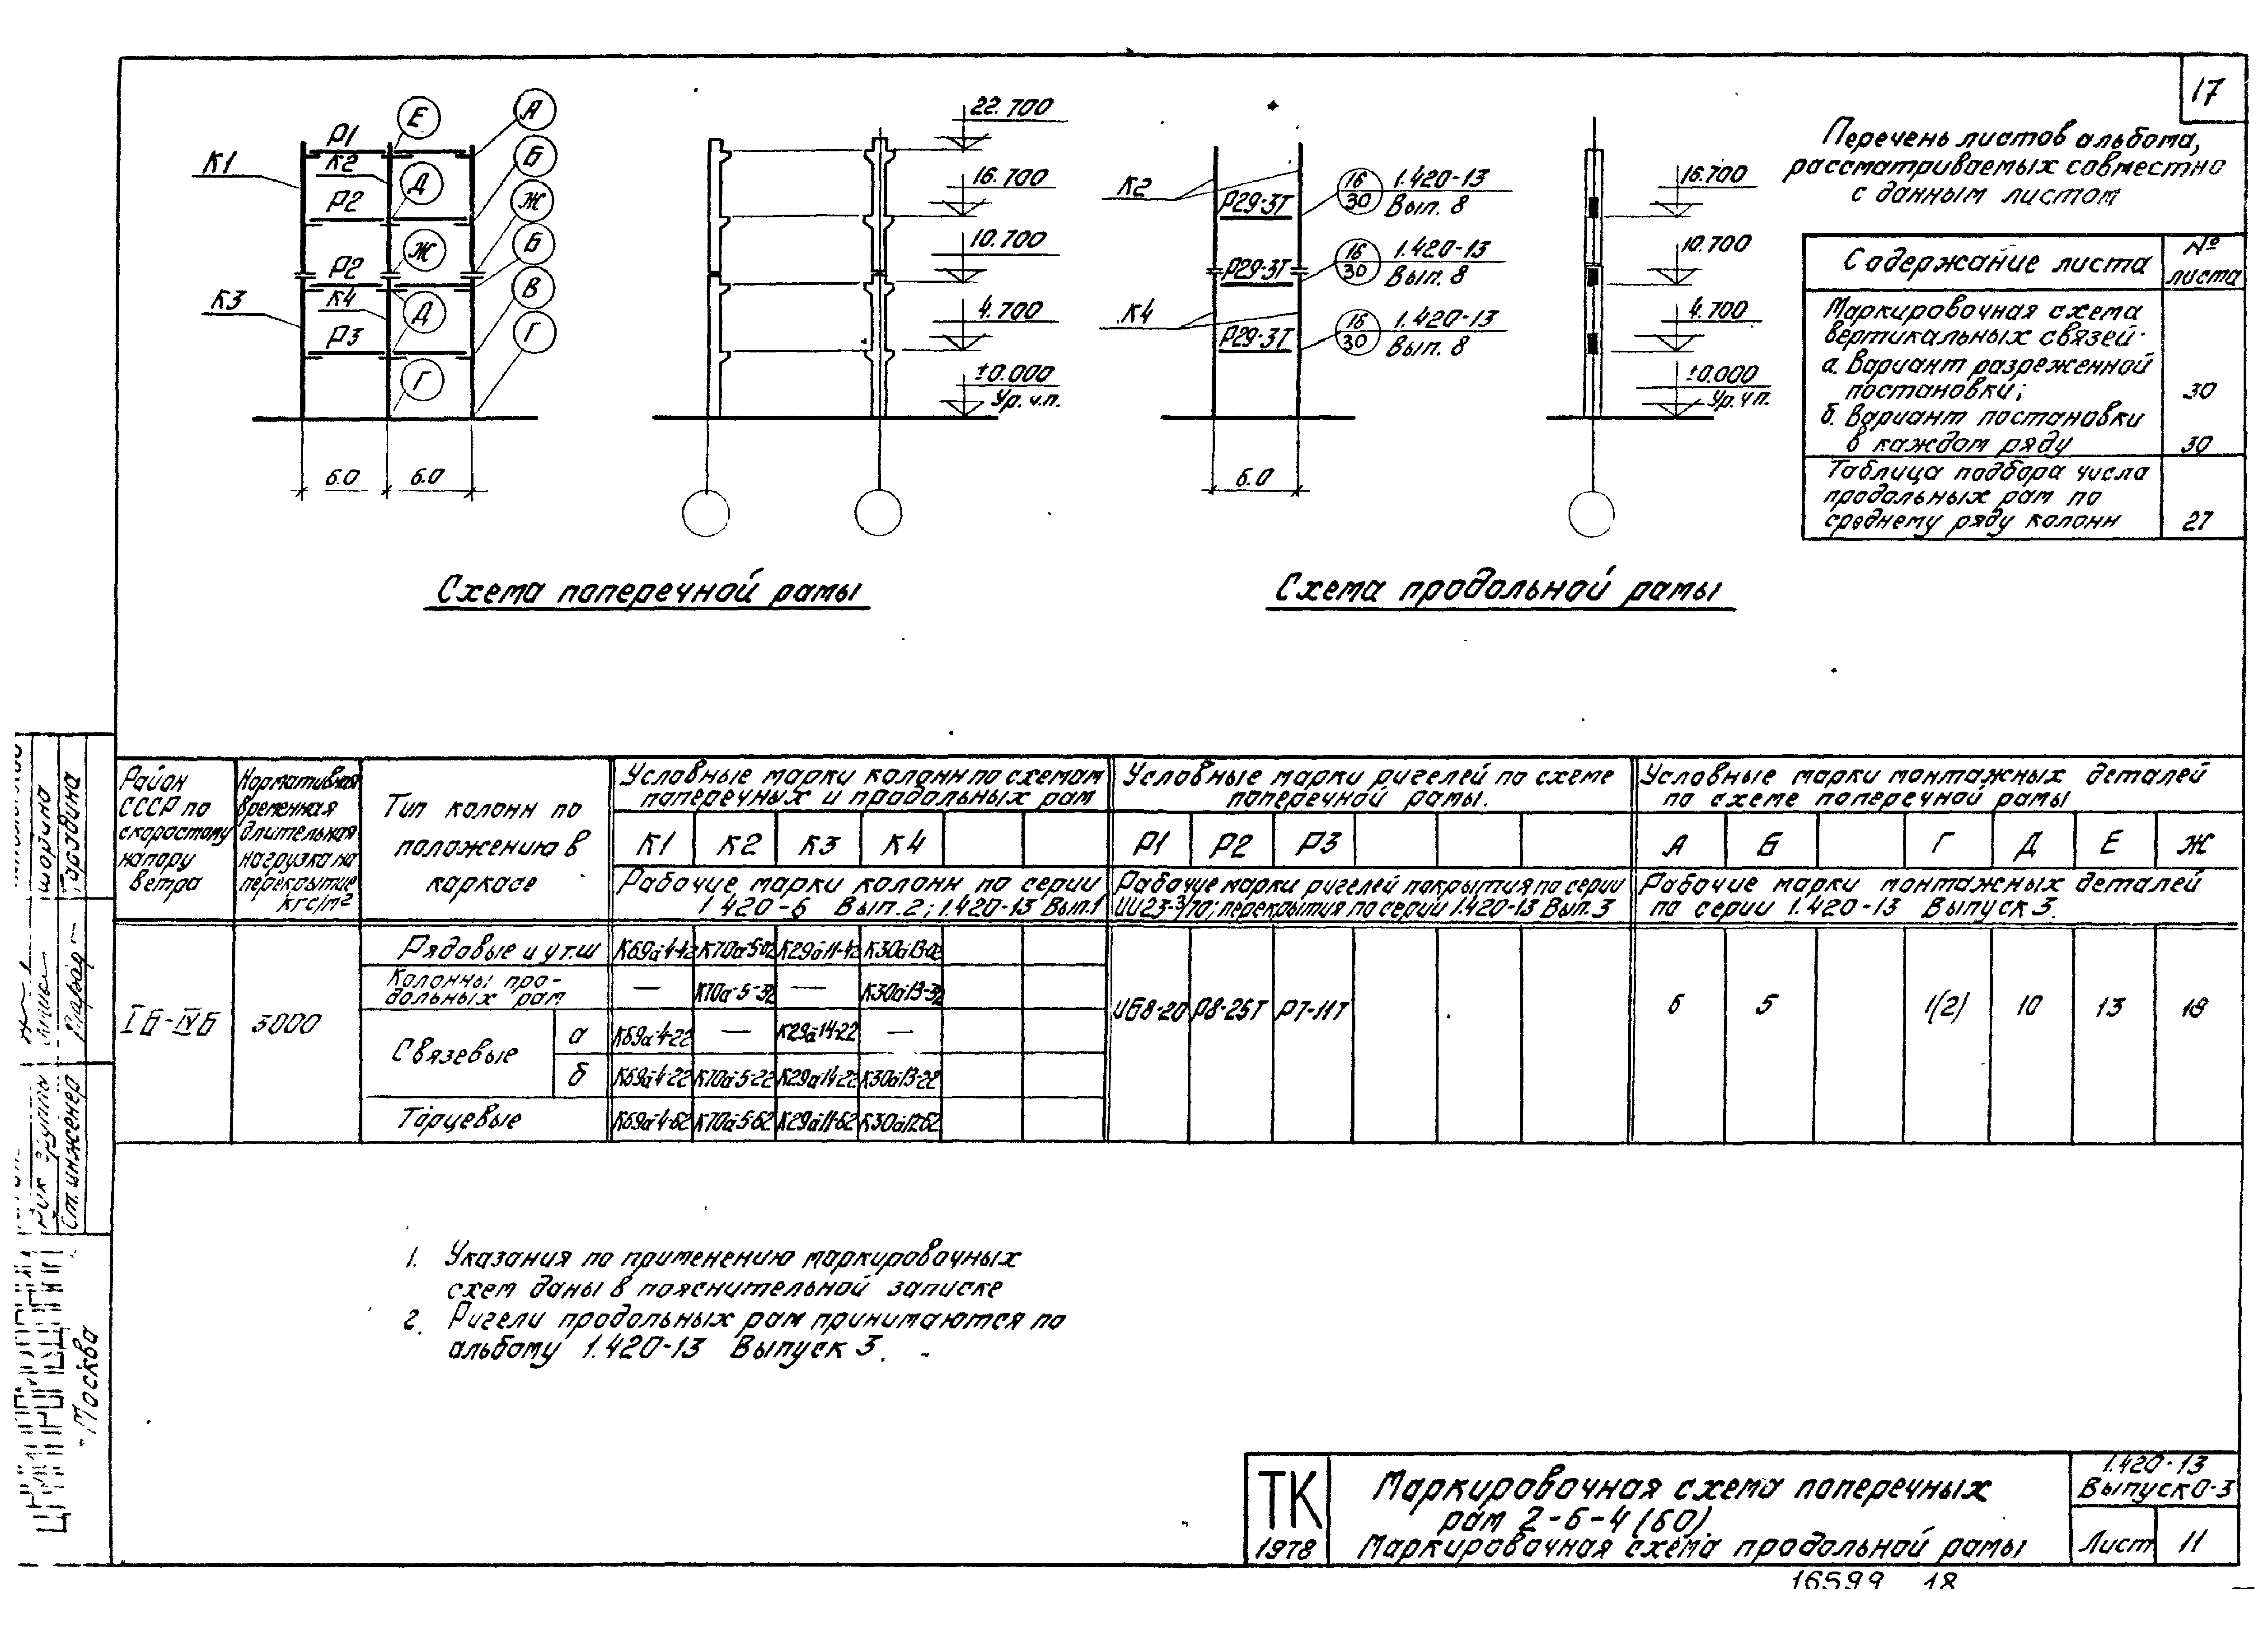 17
К1
Р1
К2
Р2
Р2
К3
К4
Р3
Е
Д
Ж
Д
Г
А
Б
Ж
Б
В
Г
6.0
6.0
22.700
16.700
10.700
4.700
±0.000
Ур. ч.п.
Схема поперечной рамы
К2
К4
Р29-3Т
Р29-3Т
Р29-3Т
16
30
1.420-13
Вып. 8
16
30
1.420-13
Вып. 8
16
30
1.420-13
Вып. 8
6.0
16.700
10.700
4.700
±0.000
Ур. ч.п.
Схема продольной рамы
Перечень листов альбома,
рассматриваемых совместно
с данным листом
Содержание листа
№
листа
Маркировочная схема
вертикальных связей:
а. Вариант разреженной
постановки;
30
б. Вариант постановки
в каждом ряду
30
Таблица подбора числа
продольных рам по
среднему ряду колонн
27
Район
СССР по
скоростному
напору
ветра
Нормативная
временная
длительная
нагрузка на
перекрытие
кгс/м²
Тип колонн по
положению в
каркасе
Условные марки колонн по схемам
поперечных и продольных рам
К1 К2 К3 К4
Рабочие марки колонн по серии
1.420-6 Вып. 2; 1.420-13 Вып. 1
Условные марки ригелей по схеме
поперечной рамы.
Р1 Р2 Р3
Рабочие марки ригелей покрытия по серии
ИИ23-3/70; перекрытия по серии 1.420-13 Вып. 3
Условные марки монтажных деталей
по схеме поперечной рамы
А Б Г Д Е Ж
Рабочие марки монтажных деталей
по серии 1.420-13 Выпуск 3.
Iб-IVб
Рядовые и у т.ш К69а-4-42 К70а-5-02 К29а-11-42 К30а-13-02
Колонны про-
дольных рам
— К70а-5-32 — К30а-13-32
Связевые
а К69а-4-22 — К29а-14-22 —
б К69а-4-22 К70а-5-22 К29а-14-22 К30а-13-22
Торцевые К69а-4-62 К70а-5-62 К29а-11-62 К30а-12-62
ИБ8-20 Р8-25Т Р7-11Т
5 1(2) 10 13
1. Указания по применению маркировочных
схем даны в пояснительной записке
2. Ригели продольных рам принимаются по
альбому 1.420-13 Выпуск 3.
Ст. инженер
Москва
ТК
1978
Маркировочная схема поперечных
рам 2-6-4 (60).
Маркировочная схема продольной рамы
1.420-13
Выпуск 0-3
Лист 11
16599 18